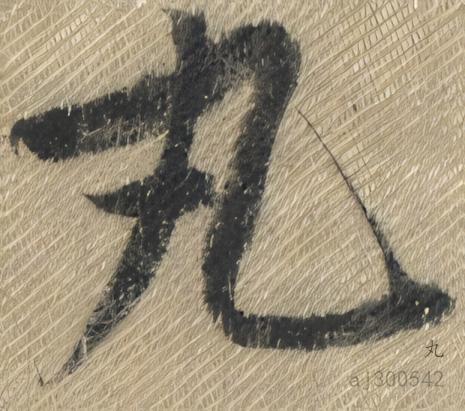 丸
丸
aj300542